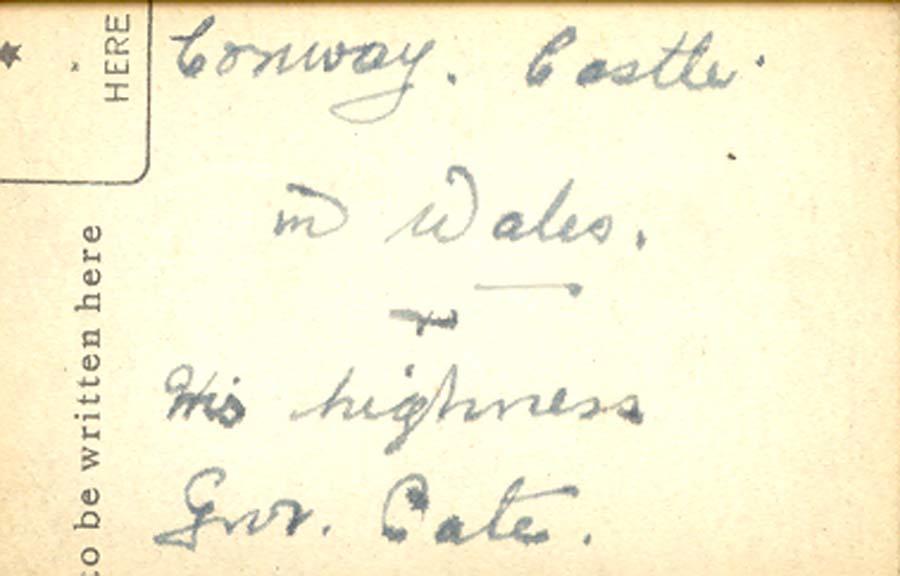 HERE
to be written here
Conway. Castle.
in Wales.
+
His highness
Gov. Cate.